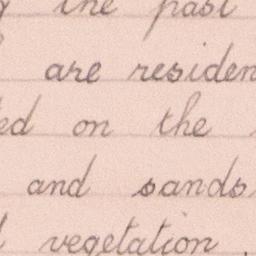 the past
are residen
ed on the
and sands
vegetation.